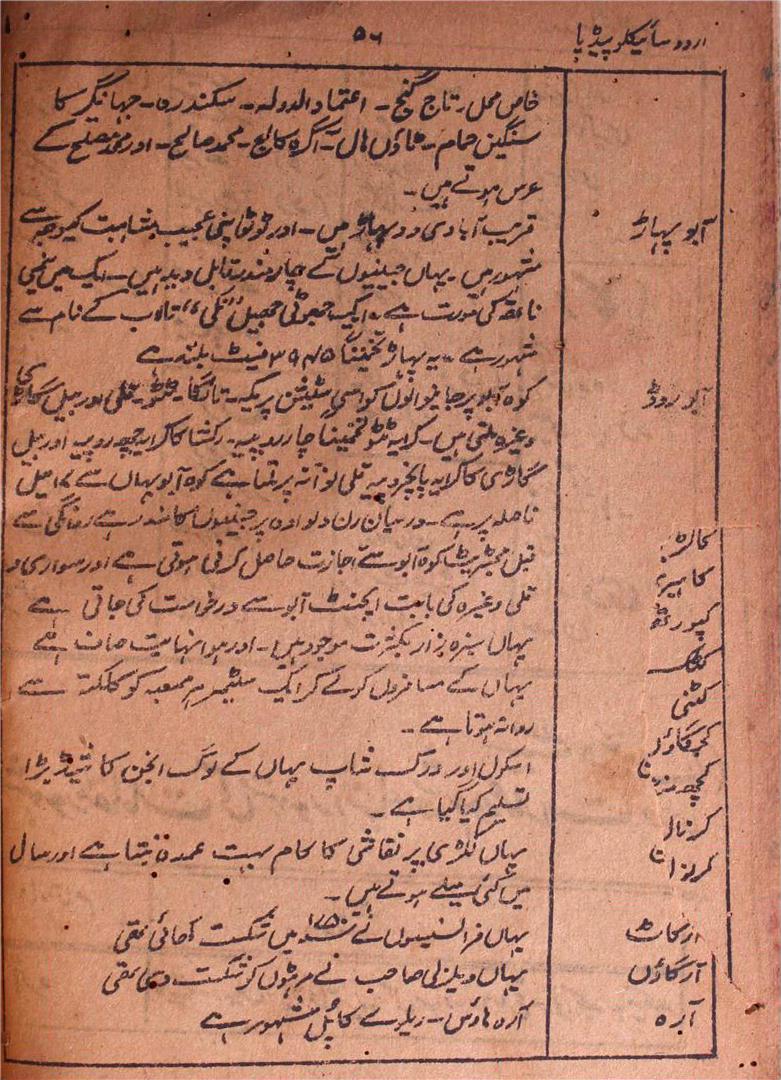 اردو سائیکلوپیڈیا
۵۶
خاص محل۔ تاج گنج۔ اعتماد الدولہ۔ سکندرہ۔ جہانگیر کا
سنگین حمام۔ ٹاؤن ہال۔ آگرہ کالج۔ محمد صالح۔ اور محمد مصلح کے
عرس ہوتے ہیں۔
آبو پہاڑ
قریب آبادی دو پہاڑ ہیں۔ اور ٹوٹو اپنی عجیب مشابہت کیوجہ سے
مشہور ہیں۔ یہاں جینیوں کے چار مندر قابل دید ہیں۔ ایک میں نیمی
ناتھ کی مورت ہے۔ ایک چھوٹی جھیل "نکی" تالاب کے نام سے
مشہور ہے۔ یہ پہاڑ تخمیناً فیٹ بلند ہے
آبو روڈ
کوہ آبو پر جانیوالوں کو اسی سٹیشن پر یکہ۔ تانگا۔ ٹٹو۔ قلی اور بیل گاڑی
وغیرہ ملتی ہیں۔ کرایہ ٹٹو تخمیناً چار روپیہ۔ رکشا کا کرایہ چھ روپیہ اور بیل
گاڑی کا کرایہ پانچروپیہ قلی نو آنہ پر ملتا ہے کوہ آبو یہاں سے ۱۷ میل
فاصلہ پر ہے۔ درمیان رن دلواڑہ پر جینیوں کا مندر ہے روانگی سے
قبل مجسٹریٹ کوہ آبو سے اجازت حاصل کرنی ہوتی ہے اور سواری و
قلی وغیرہ کی بابت ایجنٹ آبو سے درخواست کی جاتی ہے
یہاں سبزہ زار بکثرت موجود ہیں۔ اور ہوا نہایت صاف ہے
یہاں کے مسافروں کو لے کر ایک سٹیمر ہر جمعہ کو کلکتہ سے
روانہ ہوتا ہے۔
اسکول اور ورک شاپ یہاں کے لوگ انجن کا شیڈ بڑا
تسلیم کیا گیا ہے۔
یہاں لکڑی پر نقاشی کا کام بہت عمدہ بنتا ہے اور سال
میں کئی میلے ہوتے ہیں۔
کپورتھلہ
کٹک
کٹنی
کرنال
ارکاٹ
یہاں فرانسیسوں نے میں شکست کھائی تھی
آرگاؤں
یہاں ویلزلی صاحب نے مرہٹوں کو شکست دی تھی
آرہ
آرہ ہاؤس۔ ریلوے کا پُل مشہور ہے